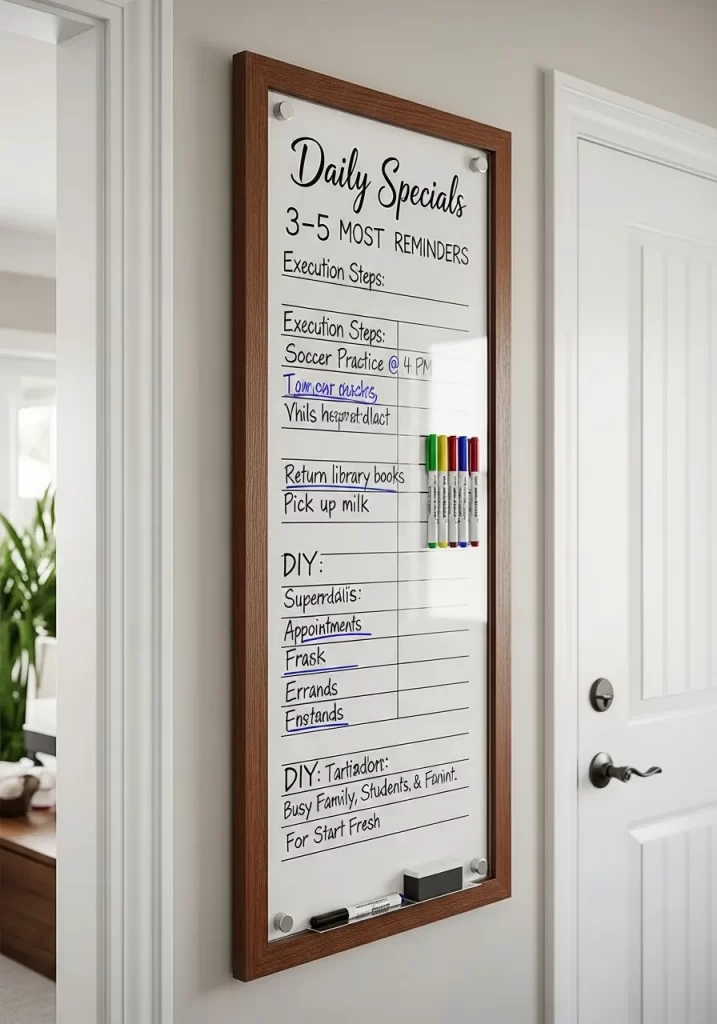 Daily Specials
3-5 MOST REMINDERS
Execution Steps:
Execution Steps:
Soccer Practice @ 4 PM
Return library books
Pick up milk
DIY:
Appointments
Frask
Errands
Enstands
DIY:
Busy Family, Students, &
For Start Fresh